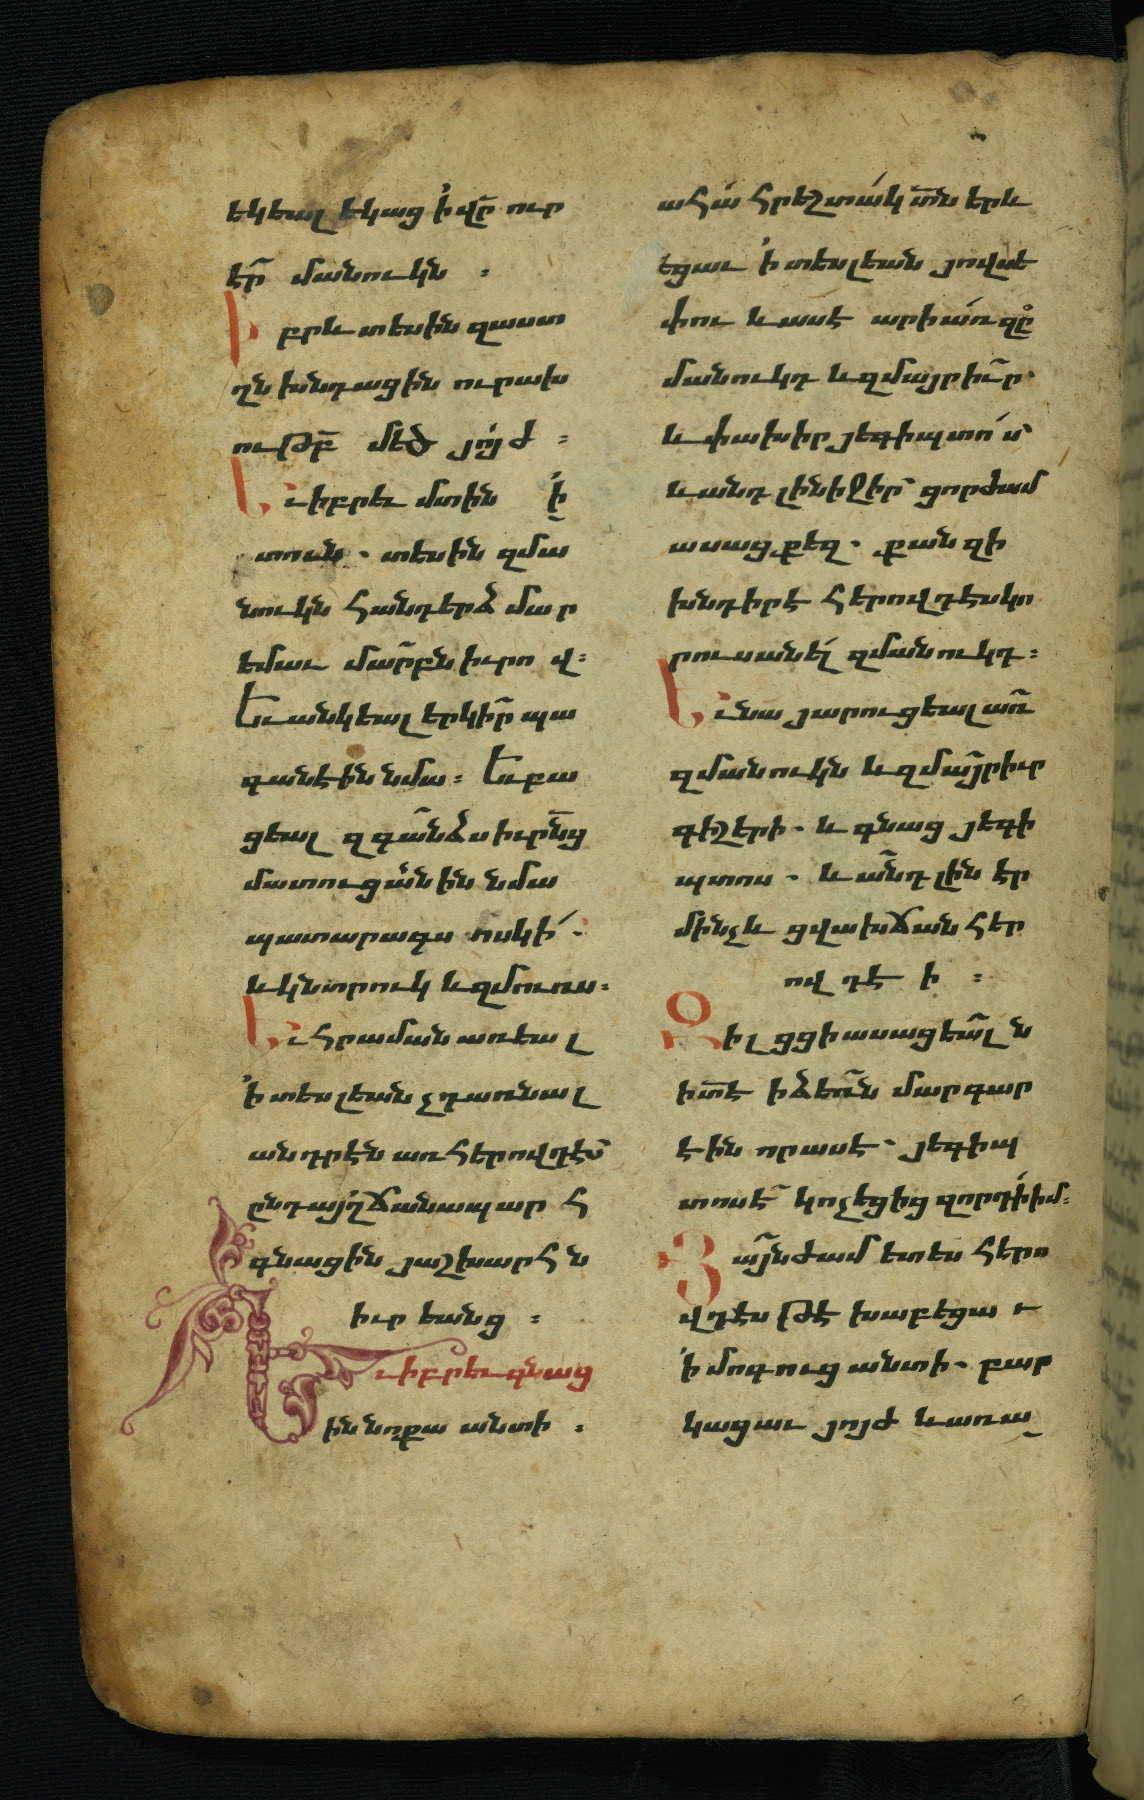 եկեալ եկաց ի վր ուր
էր մանուկն ։
Իբրև տեսին զաստ
ղն խնդացին ուրախ
ութբ մեծ յոյժ ։
Եւ իբրեւ մտին ի
տուն . տեսին զմա
նուկն հանդերձ մար
եմաւ մարբն իւրով ։
Եւ անկեալ երկիր պա
գանէին նմա ։ Եւ բա
ցեալ զգանձս իւրնց
մատուցանին նմա
պատարագս ոսկի .
և կնտրուկ և զմուռս ։
Եւ հրաման առեալ
ի տեսլեան չդառնալ
անդրէն առ հերովդէս
ընդ այղ ճանապարհ
գնացին յաշխարհն
իւր եանց ։
Եւ իբրեւ գնաց
ին նոքա անտի ։
ահա հրեշտակ տն երև
եցաւ ի տեսլեան յովսե
փու և ասէ արի առ զը
մանուկդ և զմայր իւր .
և փախիր յեգիպտոս
և անդ լինիջիր ցորժամ
ասացբ քեզ . քանզի
խնդիրէ հերովդէս կո
րուսանել զմանուկդ ։
Եւ նա յարուցեալ առ
զմանուկն և զմայր իւր
գիշերի . և գնաց յեգի
պտոս . և անդ լինէր
մինչև ցվախճան հեր
ովդէի ։
Զի լցցի ասացեալն
ի տէ ի ձեռն մարգար
էին որ ասէ . յեգիպ
տոսէ կոչեցից զորդի իմ ։
Յայնժամ ետես հերո
վդէս թէ խաբեցաւ
ի մոգուց անտի . բար
կացաւ յոյժ և առա